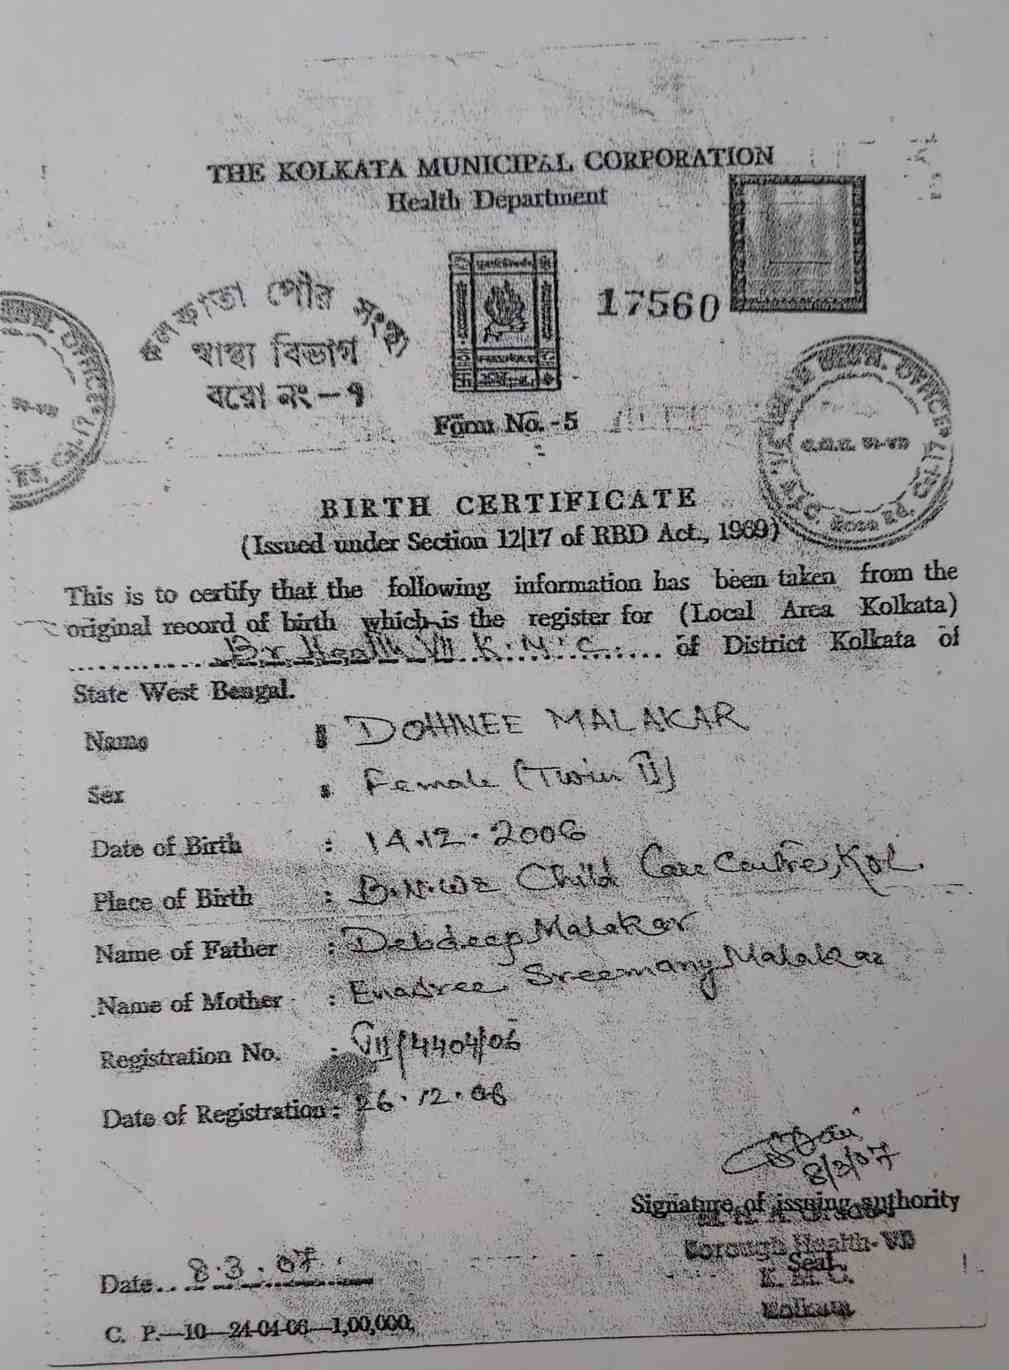 THE KOLKATA MUNICIPAL CORPORATION
Health Department
কলকাতা পৌর সংস্থা
স্বাস্থ্য বিভাগ
বরো নং-৭
17560
Form No. -5
BIRTH CERTIFICATE
(Issued under Section 12|17 of RBD Act., 1969)
This is to certify that the following information has been taken from the
original record of birth which is the register for (Local Area Kolkata)
Br. Health VII K.M.C. of District Kolkata of
State West Bengal.
Name : DOHNEE MALAKAR
Sex : Female (Twin II)
Date of Birth : 14.12.2006
Place of Birth : Child Care Centre, Kol.
Name of Father : Debdeep Malakar
Name of Mother : Enadree Sreemany Malakar
Registration No. : VII/4404/06
Date of Registration : 26.12.06
8/3/07
Signature of issuing authority
Borough Health-VII
Seal
K. M. C.
Kolkata
Date.. 8.3.07.
C. P.—10—24-04-06—1,00,000,